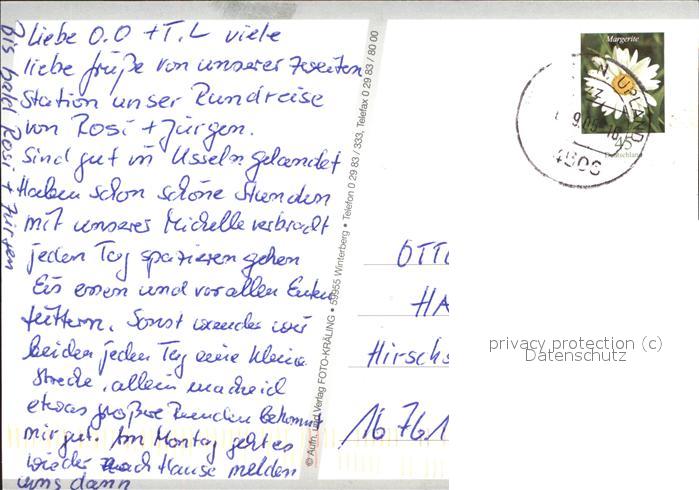 Liebe O.O + T.L viele
liebe Grüße von unserer zweiten
Station unser Rundreise
von Rosi + Jürgen.
Sind gut in Usseln gelandet
Haben schon schöne Stunden
mit unserer Michelle verbracht
jeden Tag spazieren gehen
Eis essen und vor allen Enten
füttern. Sonst wandern wir
beiden jeden Tag eine kleine
Strecke, allein mache ich
etwas größere Runden bekommt
mir gut. Am Montag geht es
wieder nach Hause melden
uns dann
Bis bald Rosi + Jürgen
© Aufn. und Verlag FOTO-KRÄLING • 59955 Winterberg • Telefon 0 29 83 / 333, Telefax 0 29 83 / 80 00
Margerite
45
Deutschland
UPLAND
4508
OTTO
HA
Hirschs
16761
privacy protection (c)
Datenschutz